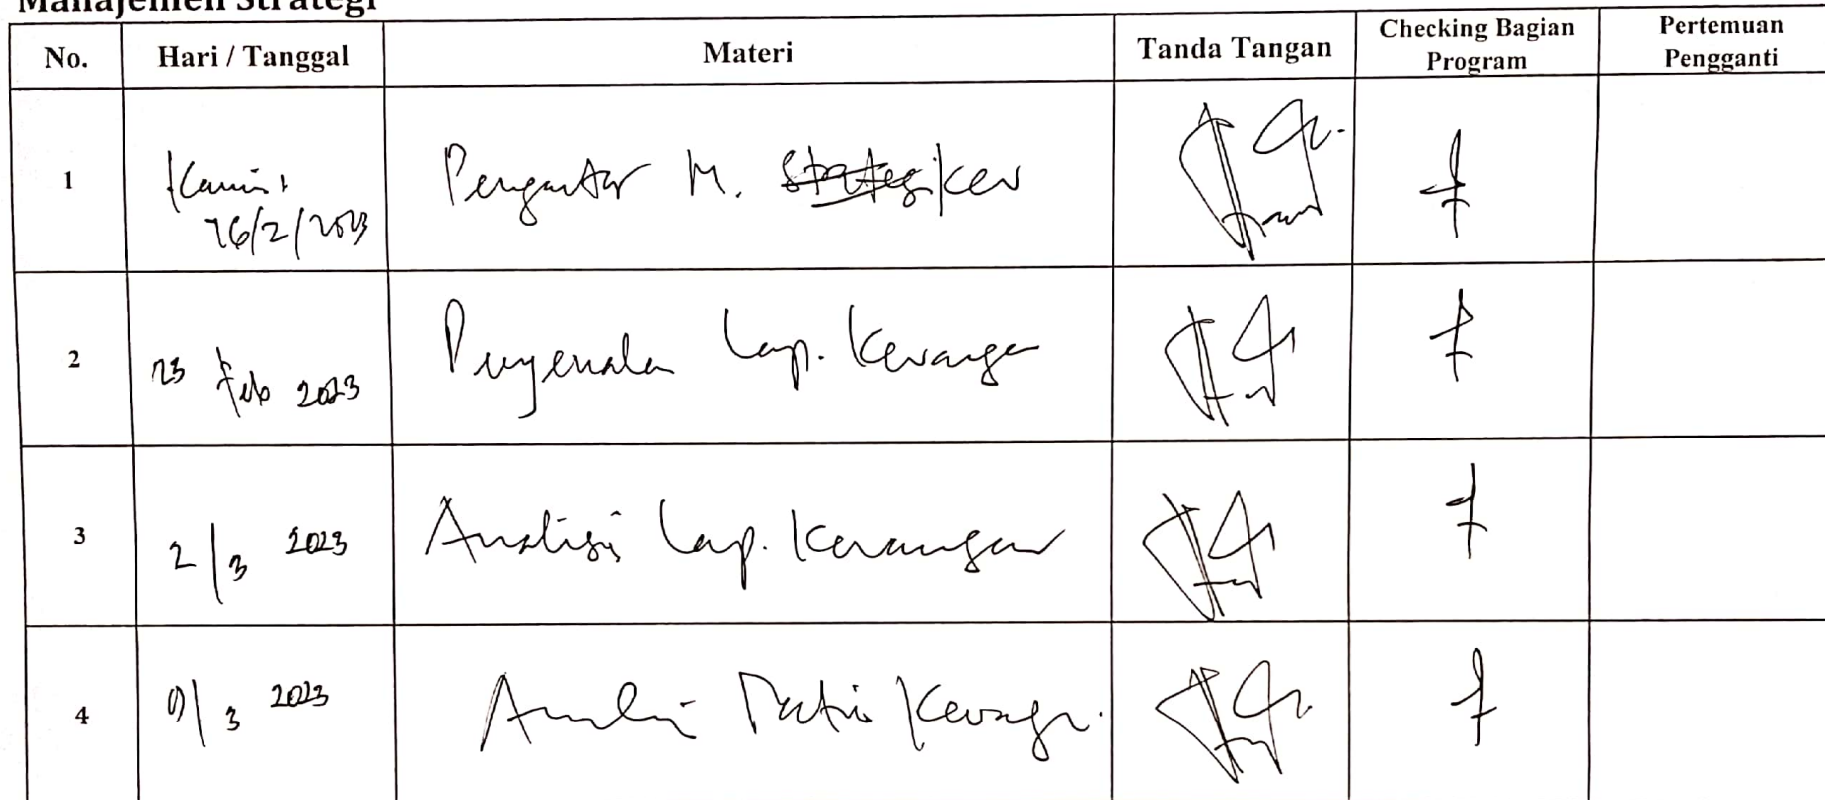 Manajemen Strategi
No. Hari / Tanggal Materi Tanda Tangan Checking Bagian Program Pertemuan Pengganti
1 Kamis, 16/2/2023 Pengantar M. Strategi Keu
2 23 Feb 2023 Pengenalan Lap. Keuangan
3 2/3 2023 Analisis Lap. Keuangan
4 9/3 2023 Analisis Ratio Keuangan.